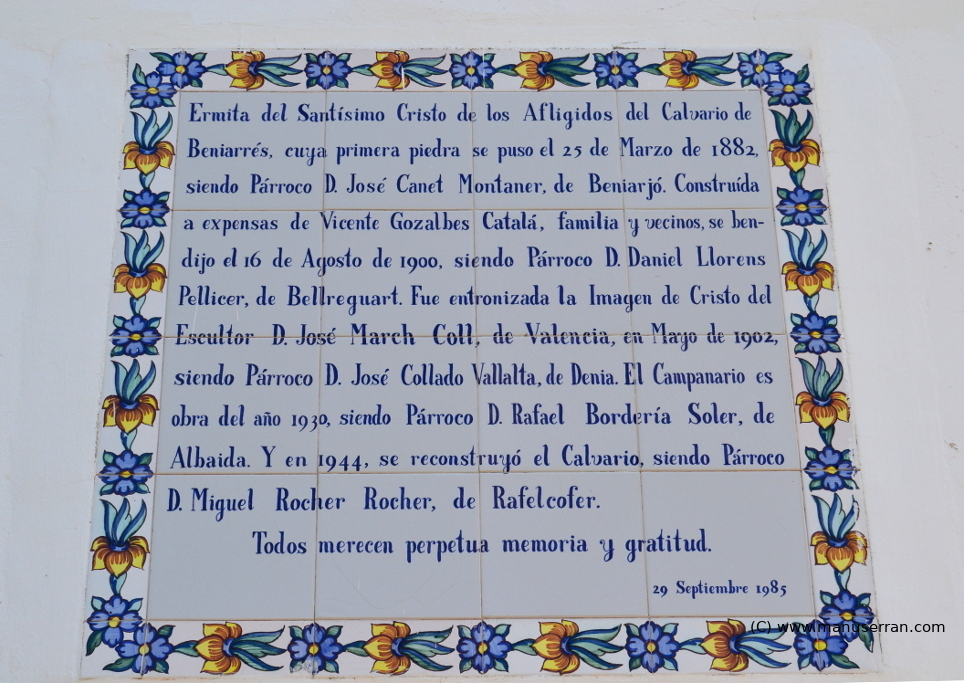 Ermita del Santísimo Cristo de los Afligidos del Calvario de
Beniarrés, cuya primera piedra se puso el 25 de Marzo de 1882,
siendo Párroco D. José Canet Montaner, de Beniarjó. Construída
a expensas de Vicente Gozalbes Catalá, familia y vecinos, se ben-
dijo el 16 de Agosto de 1900, siendo Párroco D. Daniel Llorens
Pellicer, de Bellreguart. Fue entronizada la Imagen de Cristo del
Escultor D. José March Coll, de Valencia, en Mayo de 1902,
siendo Párroco D. José Collado Vallalta, de Denia. El Campanario es
obra del año 1930, siendo Párroco D. Rafael Bordería Soler, de
Albaida. Y en 1944, se reconstruyó el Calvario, siendo Párroco
D. Miguel Rocher Rocher, de Rafelcofer.
Todos merecen perpetua memoria y gratitud.
29 Septiembre 1985
(C) www.manuserran.com